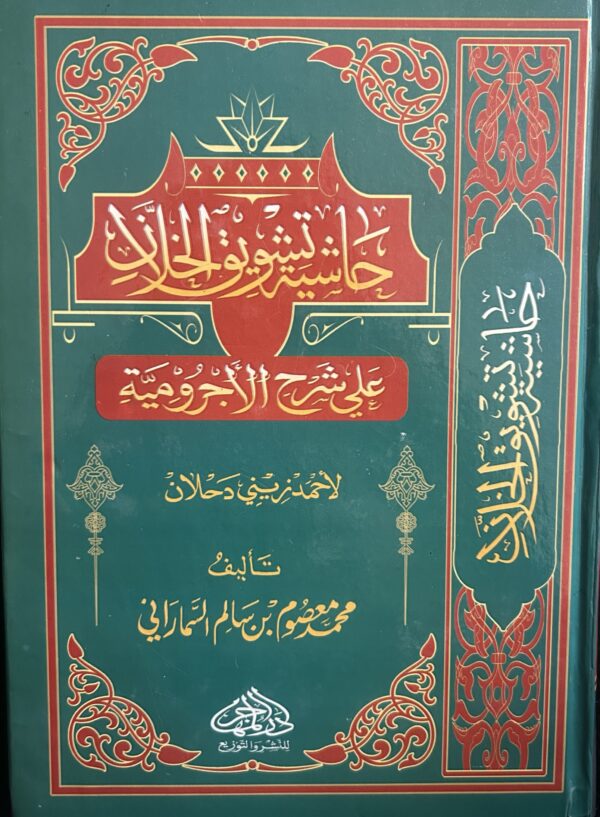 حاشية تشويق الخلان
على شرح الأجرومية
لأحمد زيني دحلان
تأليف
محمد معصوم بن سالم السماراني
دار المهاجر
للنشر والتوزيع
حاشية تشويق الخلان